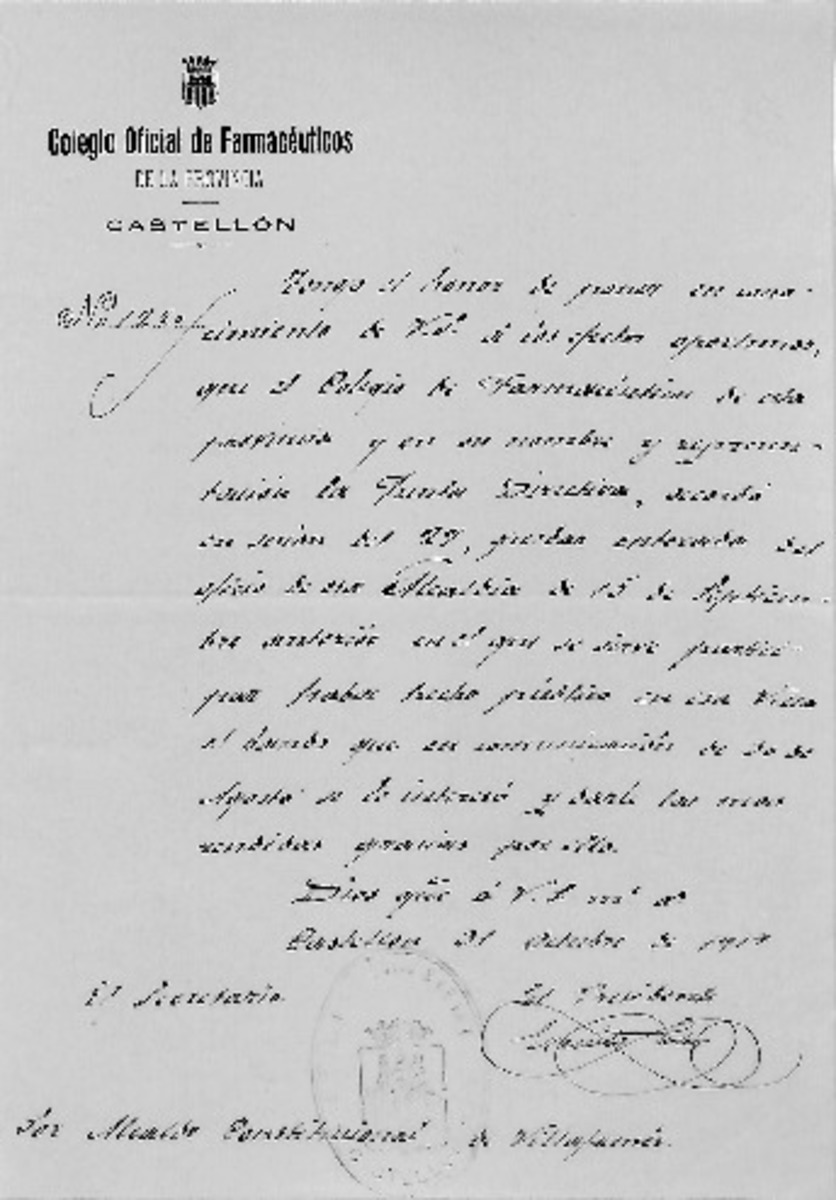 Colegio Oficial de Farmacéuticos
DE LA PROVINCIA
CASTELLÓN
Nº 123
Tengo el honor de poner en cono-
cimiento de Vd. á los efectos oportunos,
que el Colegio de Farmacéuticos de esta
provincia y en su nombre y represen-
tación la Junta Directiva, acordó
en sesión del 29, quedar enterada del
oficio de esa Alcaldía de 15 de Septiem-
bre anterior en el que se sirve partici-
par haber hecho público en esa Villa
el bando que en comunicación de 20 de
Agosto se le interesó y darle las mas
rendidas gracias por ello.
Dios gûe á V.S. mˢ aˢ
Castellon 31 Octubre de
El Secretario
El Presidente
Sor Alcalde Constitucional de Villafamés.